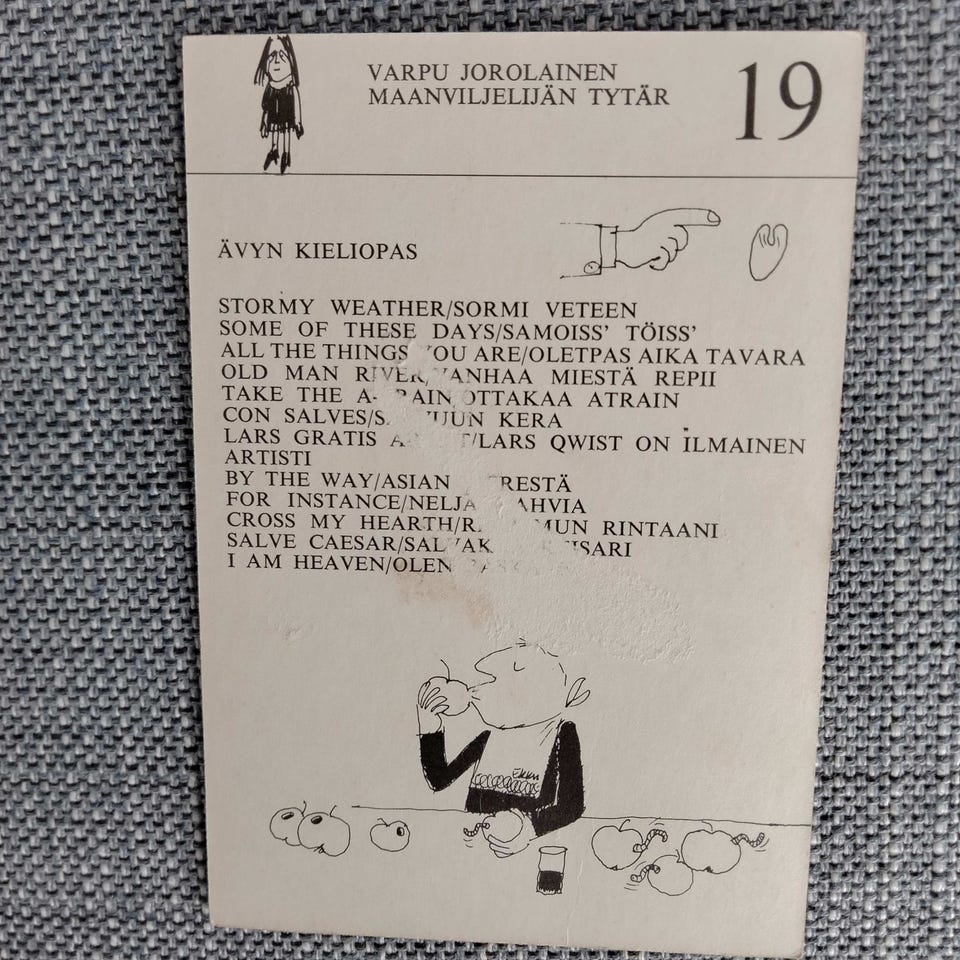 VARPU JOROLAINEN
MAANVILJELIJÄN TYTÄR
19
ÄVYN KIELIOPAS
STORMY WEATHER/SORMI VETEEN
SOME OF THESE DAYS/SAMOISS' TÖISS'
ALL THE THINGS YOU ARE/OLETPAS AIKA TAVARA
OLD MAN RIVER/VANHAA MIESTÄ REPII
TAKE THE A-TRAIN/OTTAKAA ATRAIN
CON SALVES/ KERA
LARS GRATIS /LARS QWIST ON ILMAINEN
ARTISTI
BY THE WAY/ASIAN
FOR INSTANCE/NELJÄ
CROSS MY HEARTH/ MUN RINTAANI
SALVE CAESAR/
I AM HEAVEN/OLEN